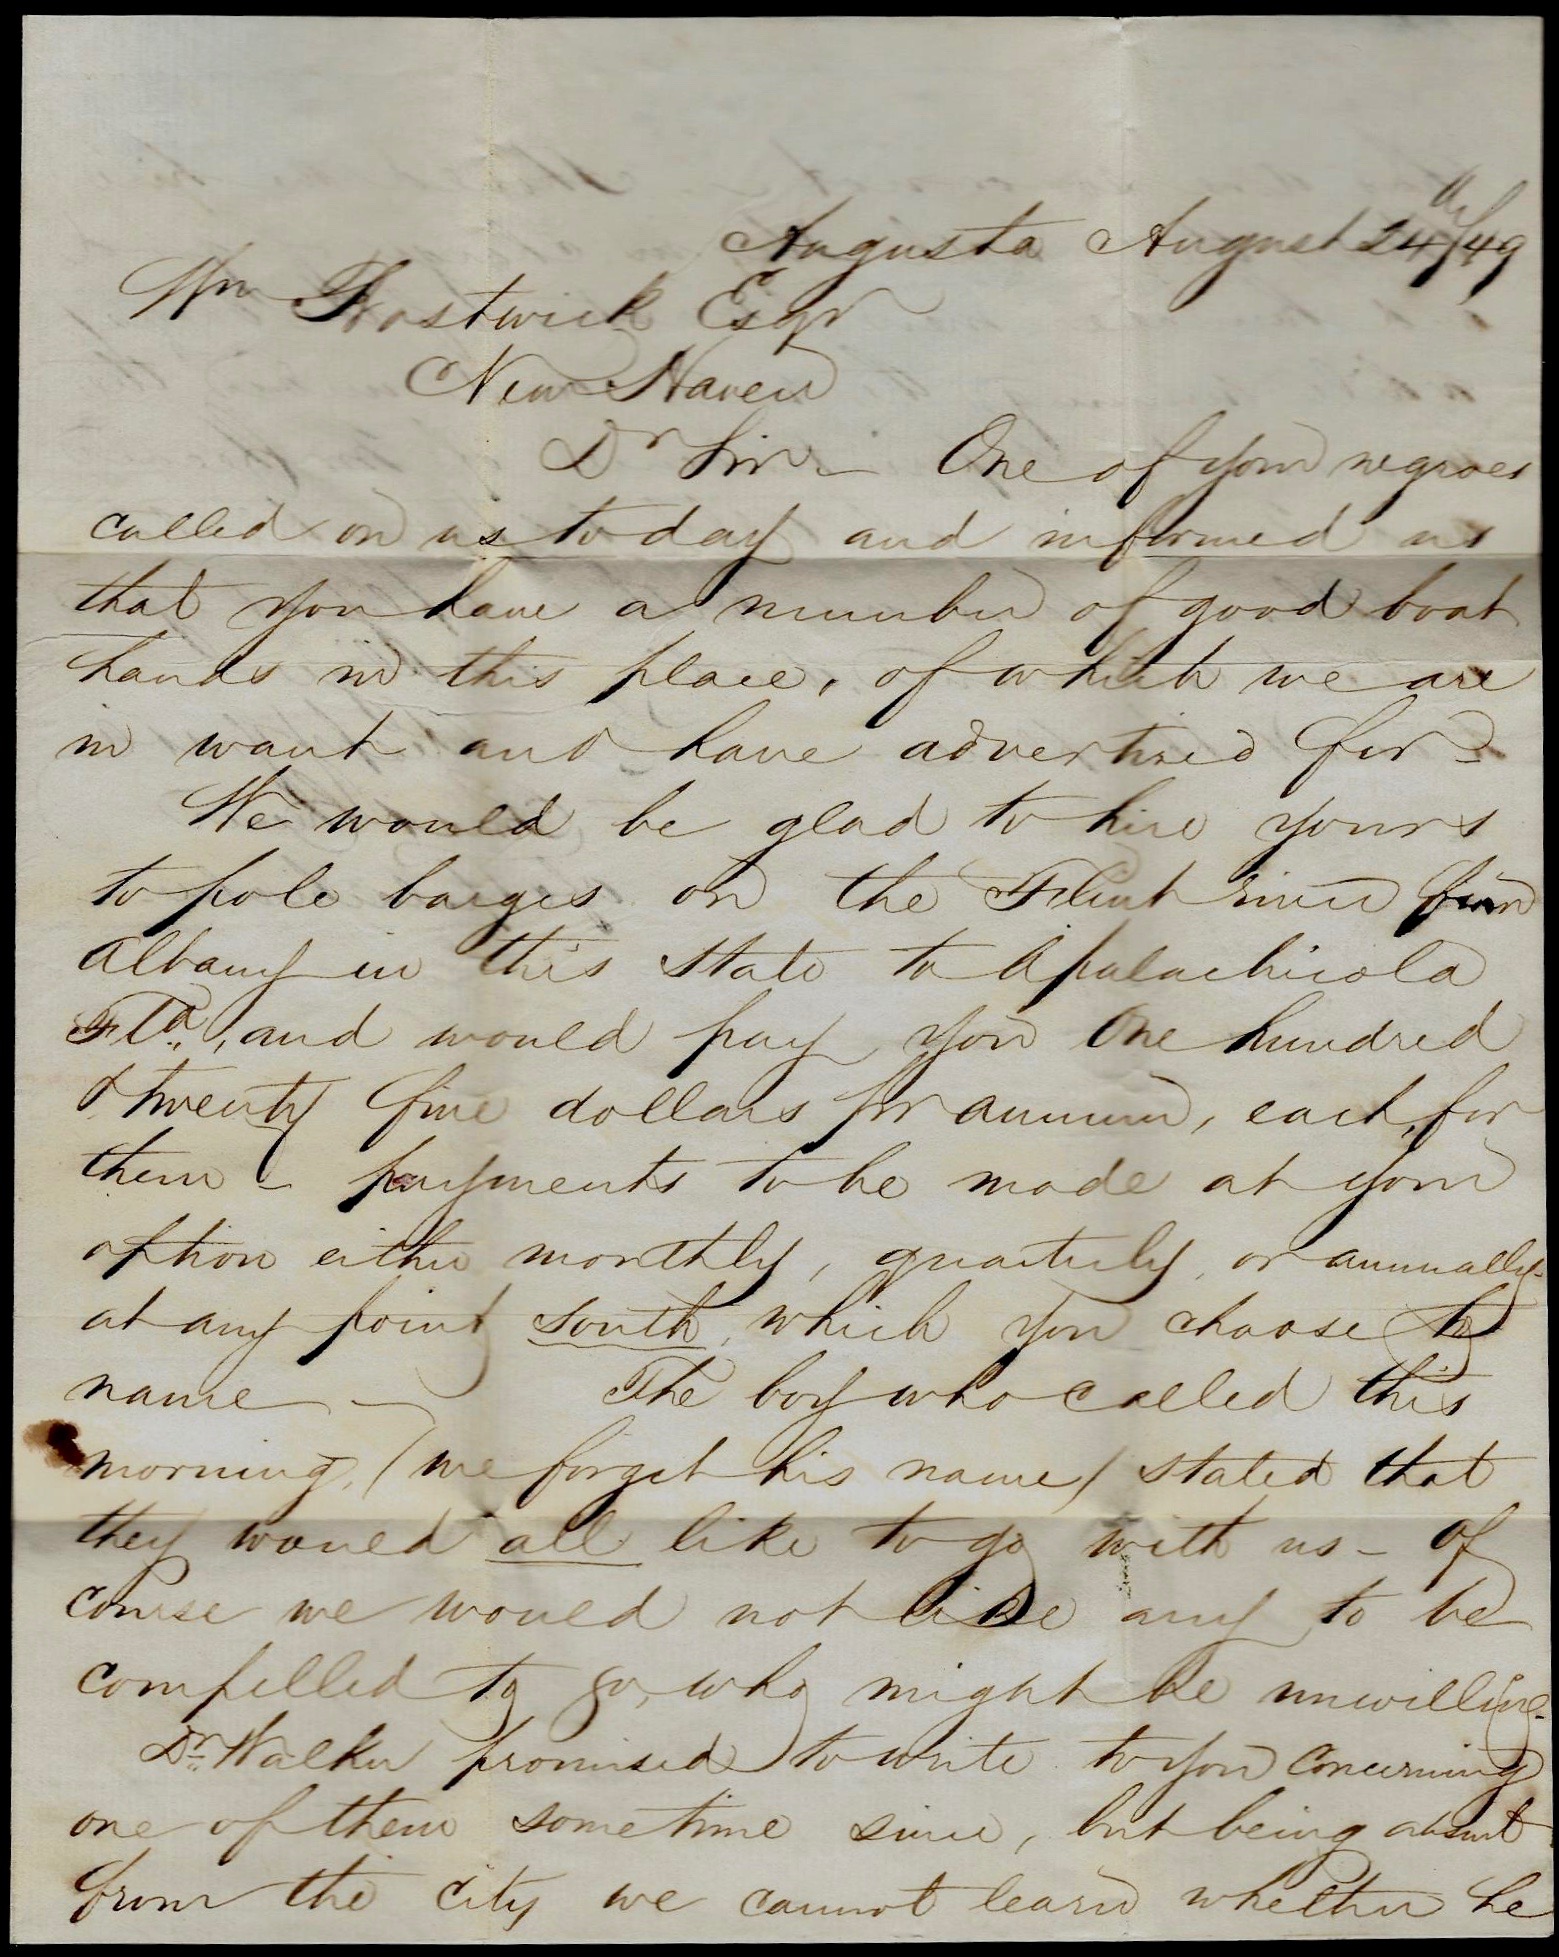 Augusta August 24th/49
Wm Bostwick Esqr
New Haven
Dr Sir – One of your negroes
called on us to day and informed us
that you have a number of good boat
hands in this place, of which we are
in want and have advertised for –
We would be glad to hire yours
to pole barges on the Flint river from
Albany in this State to Apalachicola
Fla., and would pay you One hundred
& twenty five dollars pr annum, each, for
them – payments to be made at your
option either monthly, quarterly, or annually –
at any point south, which you choose to
name – The boy who called this
morning, (we forget his name) stated that
they would all like to go with us – Of
course we would not like any to be
compelled to go, who might be unwilling –
Dr. Walker promised to write to you concerning
one of them sometime since, but being absent
from the city we cannot learn whether he